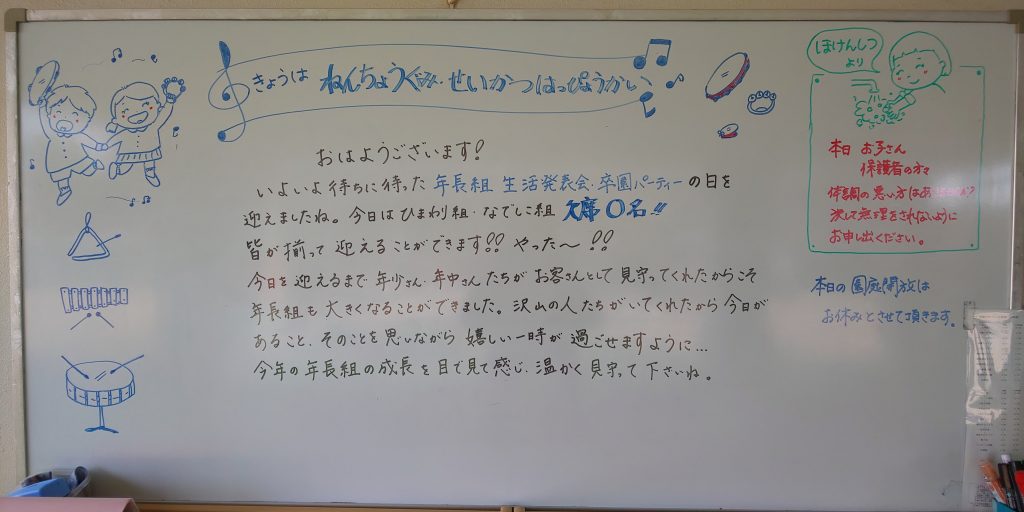 きょうは ねんちょうぐみ・せいかつはっぴょうかい
おはようございます!
いよいよ待ちに待った 年長組 生活発表会・卒園パーティーの日を
迎えましたね。今日はひまわり組・なでしこ組 欠席0名!!
皆が揃って 迎えることができます!! やった〜!!
今日を迎えるまで 年少さん、年中さんたちが お客さんとして 見守ってくれたからこそ
年長組も 大きくなることができました。沢山の人たちがいてくれたから 今日が
あること、そのことを思いながら 嬉しい一時が 過ごせますように…
今年の年長組の成長を目で見て感じ、温かく見守って下さいね。
ほけんしつ
より
本日 お子さん
保護者の方々
体調の悪い方は
決して無理をされないように
お申し出ください。
本日の園庭開放は
お休みとさせて頂きます。